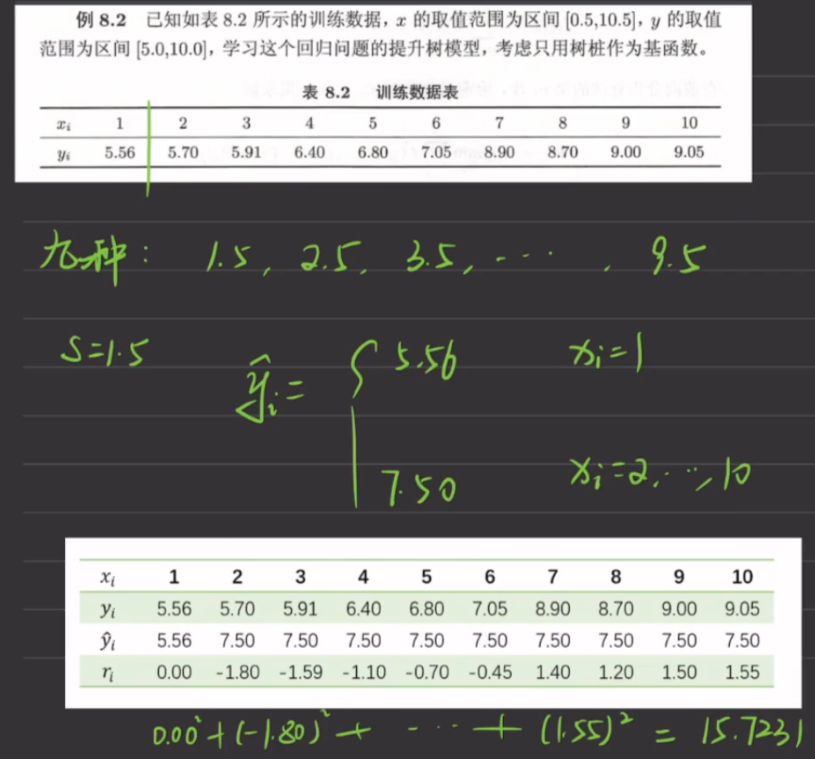 例 8.2 已知如表 8.2 所示的训练数据，x 的取值范围为区间 [0.5,10.5]，y 的取值
范围为区间 [5.0,10.0]，学习这个回归问题的提升树模型，考虑只用树桩作为基函数。
表 8.2 训练数据表
xᵢ 1 2 3 4 5 6 7 8 9 10
yᵢ 5.56 5.70 5.91 6.40 6.80 7.05 8.90 8.70 9.00 9.05
九种： 1.5, 2.5, 3.5, ..... , 9.5
S=1.5
ŷᵢ= { 5.56 xᵢ=1
7.50 xᵢ=2,...,10
xᵢ 1 2 3 4 5 6 7 8 9 10
yᵢ 5.56 5.70 5.91 6.40 6.80 7.05 8.90 8.70 9.00 9.05
ŷᵢ 5.56 7.50 7.50 7.50 7.50 7.50 7.50 7.50 7.50 7.50
rᵢ 0.00 -1.80 -1.59 -1.10 -0.70 -0.45 1.40 1.20 1.50 1.55
0.00²+(-1.80)²+ .... +(1.55)² = 15.7231